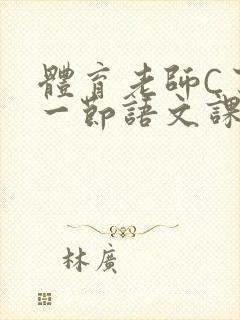 體育老師C
一節語文課
林廣